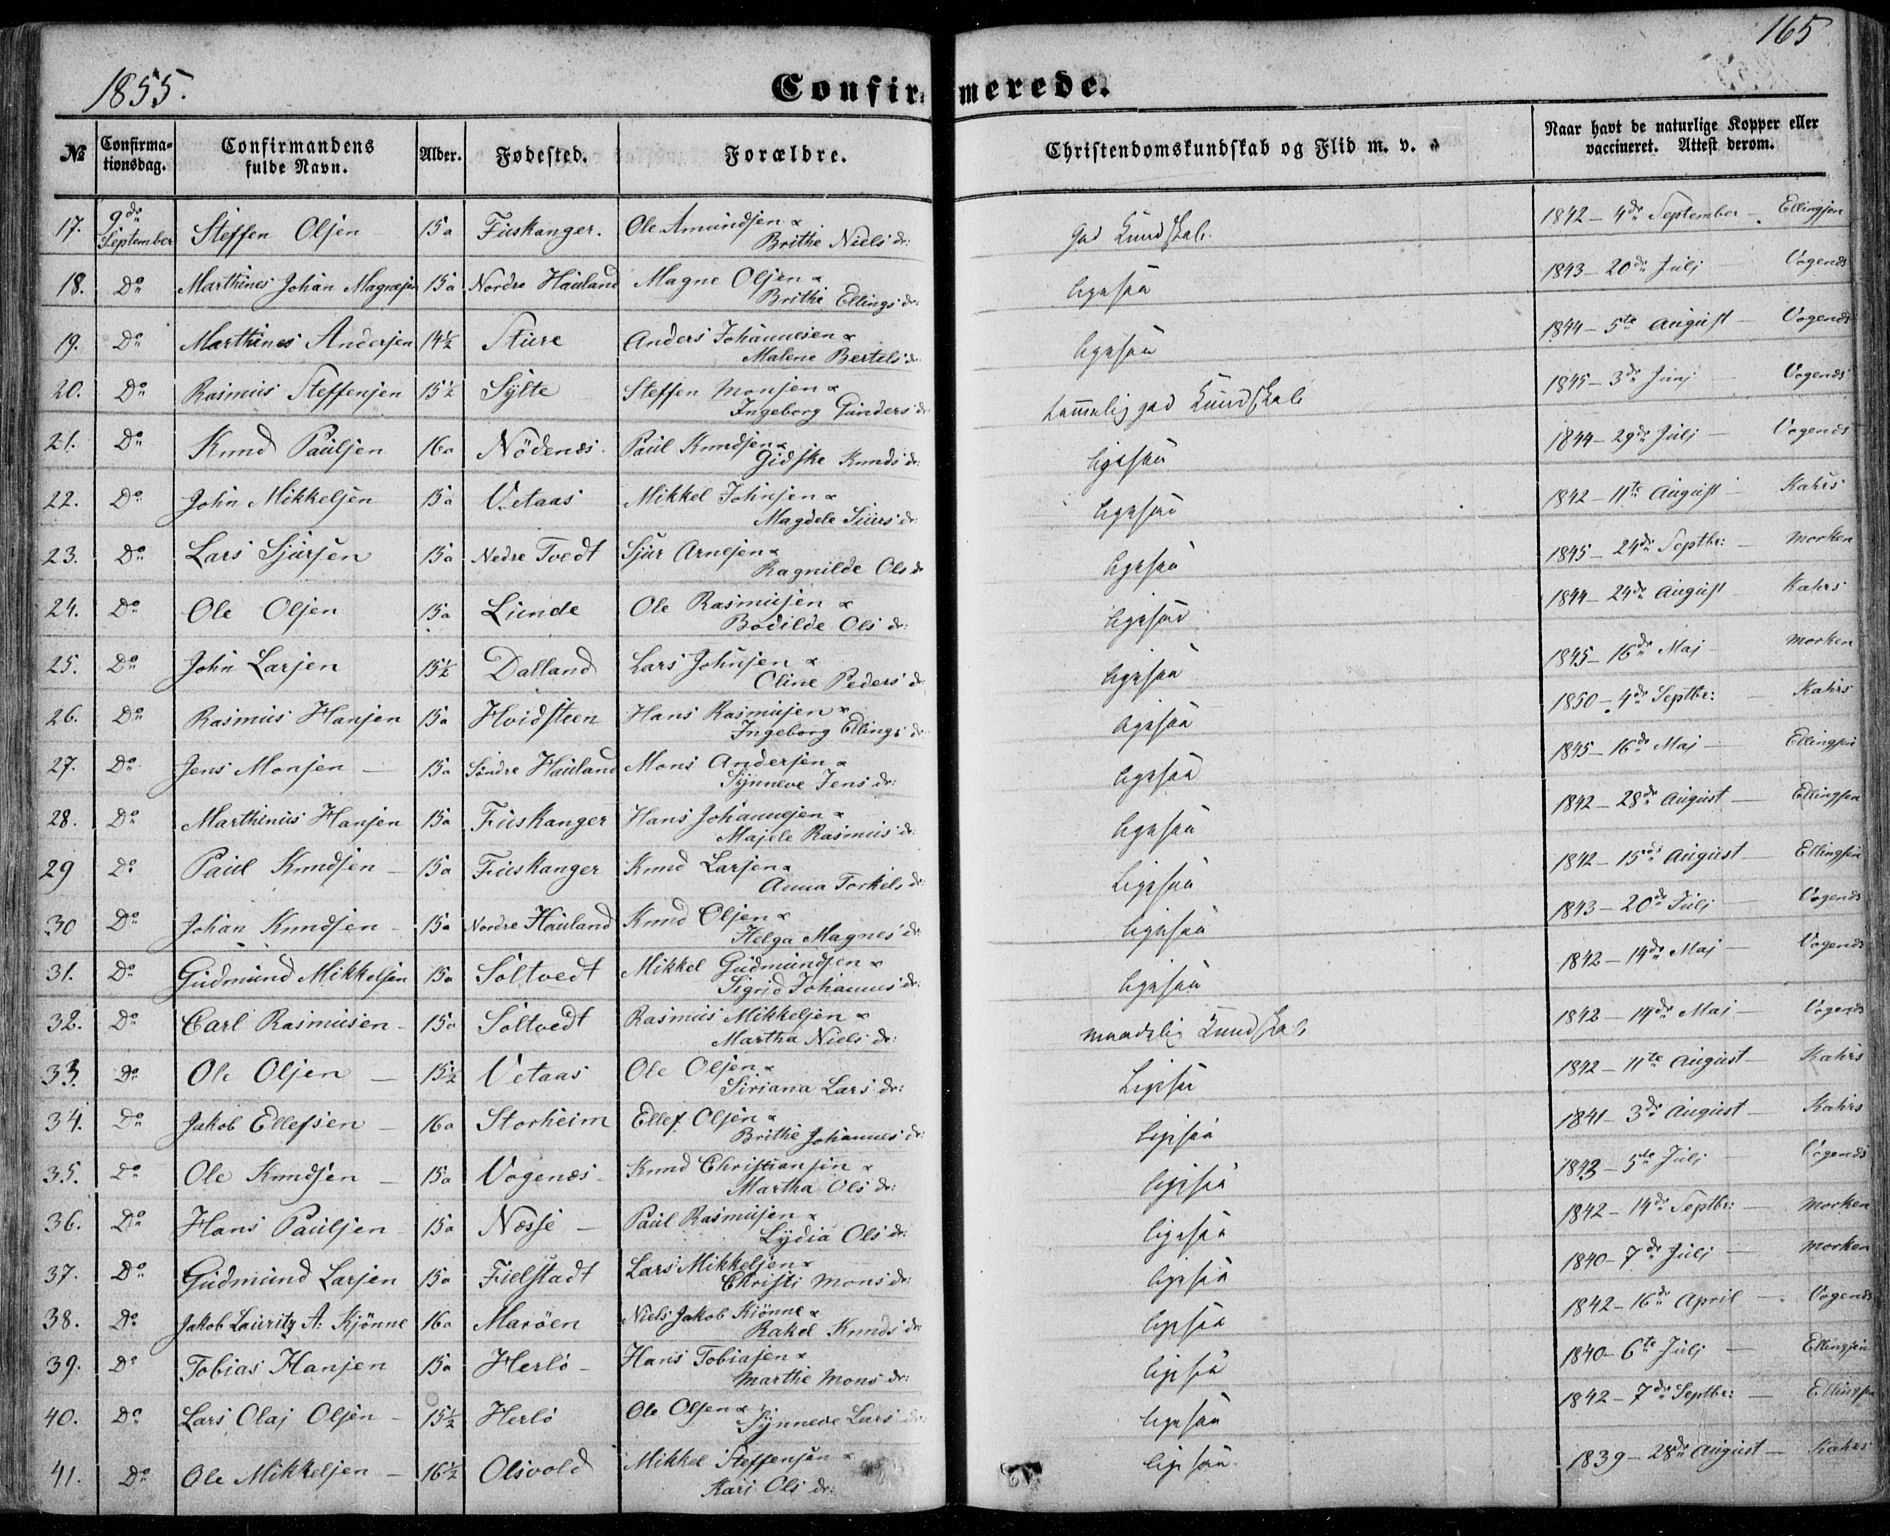 165
1855.
Confirmerede.
№ Confirmationsdag. Confirmandens fulde Navn. Alder. Fødested. Forældre. Christendomskundskab og Flid m. v. Naar havt de naturlige Kopper eller vaccineret. Attest derom.
17. 9de September Steffen Olsen 15a Fuskanger. Ole Amundsen & Brithe Niels dr: god Kundskab. 1842 – 4de September – Ellingsen
18. Do Marthines Johan Magnesen 15a Nordre Hauland Magne Olsen & Brithe Ellings dr: ligesaa 1843 – 20de Juli Vogenæs
19. Do Marthines Andersen 14½ Sture Anders Johannesen & Malene Bertels dr: ligesaa 1844 – 5te August – Vogenæs
20. Do Rasmus Steffensen 15½ Sylte Steffen Monsen & Ingeborg Gunders dr: temmelig god Kundskab 1845 – 3de Juni – Vogenæs
21. Do Knud Paulsen 16a Nödenæs. Paul Knudsen & Gidske Knuds dr: ligesaa 1844 – 29de Juli – Vogenæs
22. Do John Mikkelsen 15a Vetaas Mikkel Johnsen & Magdele Siurs dr: ligesaa 1842 – 11te August – Kahrs
23. Do Lars Sjursen 15a Nedre Tvedt Sjur Arnesen & Ragnilde Ols dr ligesaa 1845 – 24de Septbr: – Morken
24. Do Ole Olsen 15a Lunde Ole Rasmusen & Bodilde Ols dr: ligesaa 1844 – 24de August – Kahrs
25. Do John Larsen 15½ Dalland Lars Johnsen & Oline Peders dr ligesaa 1845 – 16de Maj – Morken
26. Do Rasmus Hansen 15a Hvidsteen Hans Rasmusen & Ingeborg Ellings dr ligesaa 1850 – 4de Septbr: – Kahrs
27. Do Jens Monsen – 15a Söndre Hauland Mons Andersen & Synneve Jens dr: ligesaa 1845 – 16de Maj – Ellingsen
28. Do Marthinus Hansen 15a Fuskanger Hans Johannesen & Majele Rasmus dr: ligesaa 1842 – 28de August – Ellingsen
29 Do Paul Knudsen – 15a Fuskanger Knud Larsen & Anna Torkels dr: ligesaa 1842 – 15de August – Ellingsen
30 Do Johan Knudsen – 15a Nordre Hauland Knud Olsen & Helga Magnes dr: ligesaa 1843 – 20de Juli – Vogenæs
31. Do Gudmund Mikkelsen 15a Soltvedt Mikkel Gudmundsen & Sigrid Johannes dr: ligesaa 1842 – 14de Maj – Vogenæs
32. Do Carl Rasmusen – 15a Soltvedt Rasmus Mikkelsen & Martha Niels dr: maadelig Kundskab 1842 – 14de Maj – Vogenæs
33. Do Ole Olsen – 15½ Vetaas Ole Olsen & Siriana Lars dr: ligesaa 1842 – 11te August – Kahrs
34. Do Jakob Ellefsen – 16a Storheim Ellef Olsen & Brithe Johannes dr: ligesaa 1841 – 3de August – Kahrs
35. Do Ole Knudsen – 15a Vogenæs – Knud Christiansen & Martha Ols dr: ligesaa 1843 – 5te Juli – Vogenæs
36. Do Hans Paulsen – 15a Næsse – Paul Rasmusen & Lydia Ols dr: ligesaa 1842 – 14de Septbr: – Morken
37. Do Gudmund Larsen 15a Fielstadt Lars Mikkelsen & Christi Mons dr: ligesaa 1840 – 7de Juli – Morken
38. Do Jakob Lauritz A: Kjönne 16a Maröen Niels Jakob Kiönne & Rakel Knuds dr ligesaa 1842 – 16de April – Vogenæs
39. Do Tobias Hansen 15a Herlö – Hans Tobiasen & Marthe Mons dr: ligesaa 1840 – 6te Juli – Ellingsen
40. Do Lars Olaj Olsen – 15½ Herlö Ole Olsen & Synneve Lars dr: ligesaa 1842 – 7de Septbr: – Ellingsen
41. Do Ole Mikkelsen – 16½ Olsvold Mikkel Steffensen & Kari Ols dr: ligesaa. 1839 – 28de August – Kahrs